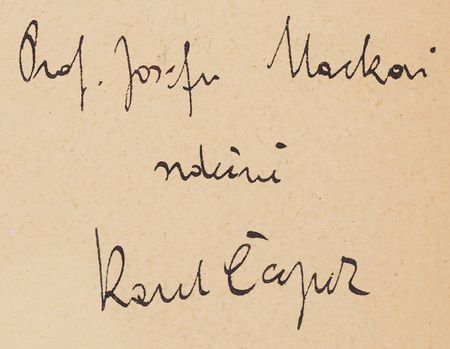 Prof. Josefu Mackovi
srdečně
Karel Čapek